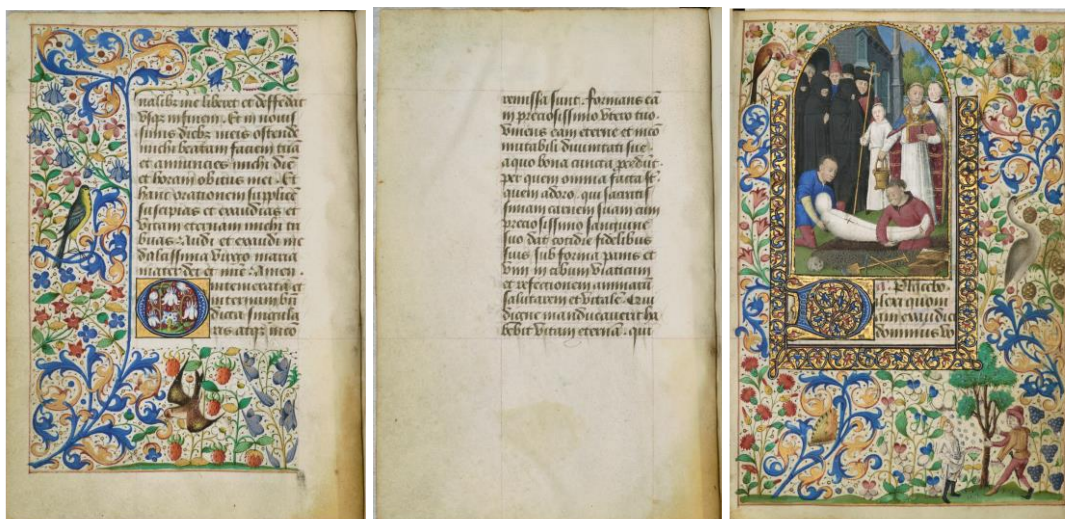 nalibꝫ me liberet et deffēdat
Vsqꝫ in finem. Et in nouis
simis diebꝫ meis ostende
michi beatam faciem tuā
et annuncies michi diē
et horam obitus mei. Et
hanc orationem supplicē
suscipias et exaudias et
vitam eternam michi tri
buas. Audi et exaudi me
dulcissima virgo maria
mater dei et mīe. Amen.
O intemerata et
in eternum bn̄
dicta singula
ris atqꝫ inco
remissa sunt. formans eā
in preciosissimo vtero tuo.
Vniens eam eterne et inco
mutabili diuinitati sue.
a quo bona cuncta pcedūt.
per quem omnia facta sūt
quem adoro. qui sacratis
simam carnem suam cum
preciosissimo sanguine
suo dat cotidie fidelibus
suis sub forma panis et
vini in cibum viaticum
et refectionem animarū
salutarem et vitalē. Qui
digne manducauerit ha
bebit vitam eternā. qui
Placebo
Dilexi quoni
am exaudiet
dominus vo